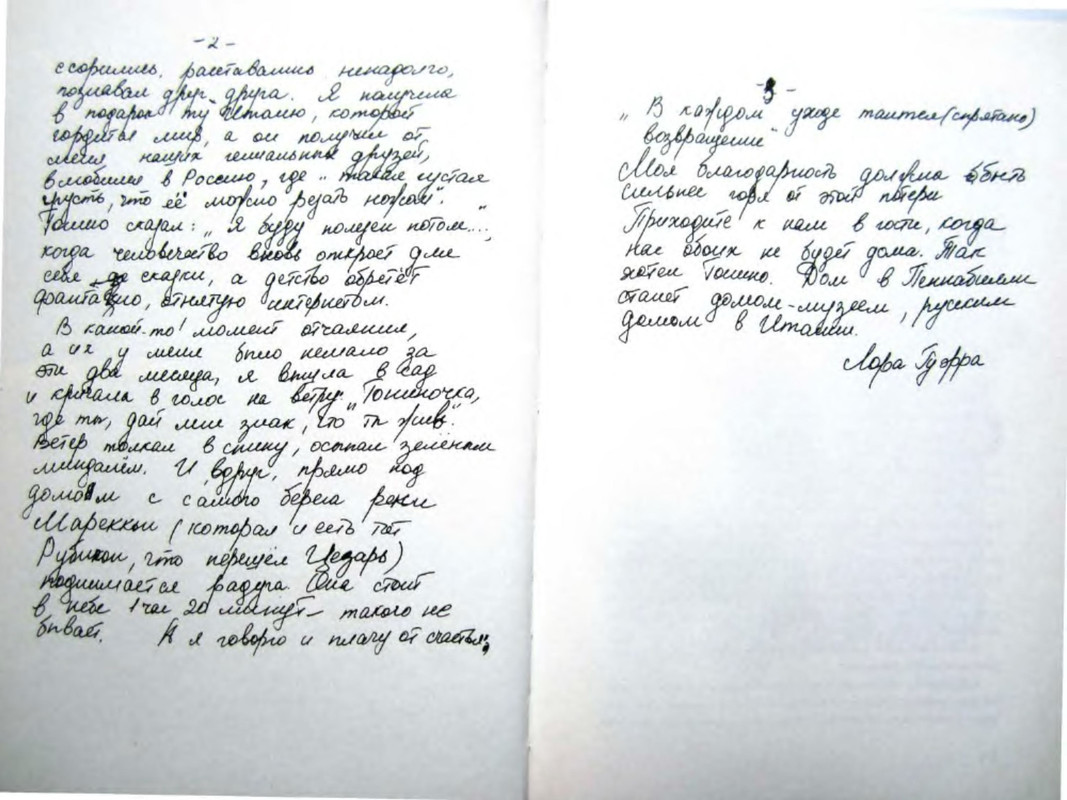 -2-
ссорились, расставались ненадолго,
познавая друг друга. Я получила
в подарок ту Италию, которой
гордится мир, а он получил от
меня наших гениальных друзей,
влюбился в Россию, где „такая густая
грусть, что её можно резать ножом“.
Тонино сказал: „Я буду полезен потом...,“
когда человечество вновь откроет для
себя сказки, а детство обретёт
фантазию, отнятую интернетом.
В какой-то момент отчаяния,
а их у меня было немало за
эти два месяца, я вышла в сад
и кричала в голос на ветру „Тониночка,
где ты, дай мне знак, что ты жив“.
Ветер толкал в спину, осыпал зелёным
миндалём. И вдруг, прямо под
домом с самого берега реки
Мареккьи (которая и есть тот
Рубикон, что перешёл Цезарь)
поднимается радуга. Она стоит
в небе 1 час 20 минут – такого не
бывает. А я говорю и плачу от счастья;
-3-
„В каждом уходе таится (спрятано)
возвращение“
Моя благодарность должна быть
сильнее горя от этой потери
Приходите к нам в гости, когда
нас обоих не будет дома. Так
хотел Тонино. Дом в Пеннабилли
станет домом-музеем, русским
домом в Италии.
Лора Гуэрра